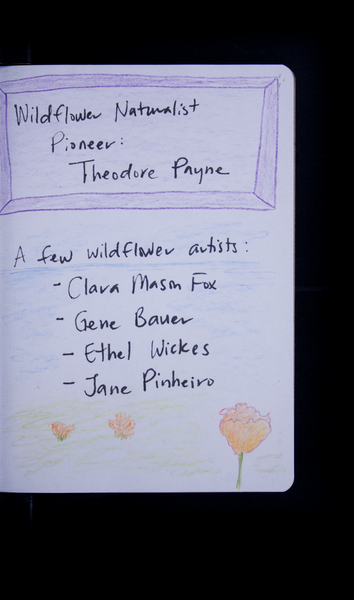 Wildflower Naturalist
Pioneer:
Theodore Payne
A few wildflower artists:
- Clara Mason Fox
- Gene Bauer
- Ethel Wickes
- Jane Pinheiro